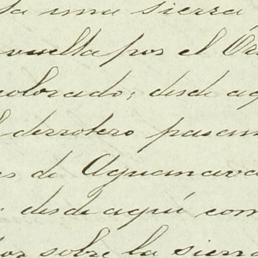 ta una sierra
vuelta por el Or
colorado; desde aq
derrotero pasam
es de Aguanava
desde aquí com
por sobre la sierra